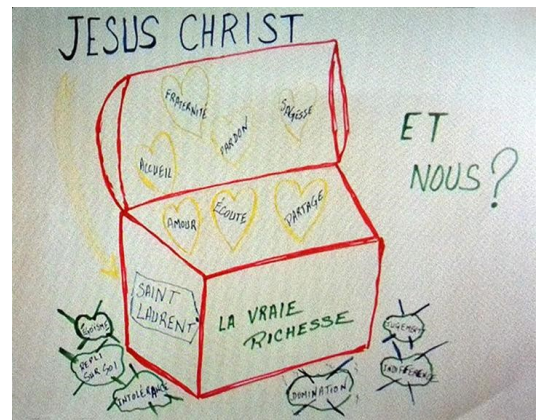 JESUS CHRIST
FRATERNITÉ
SAGESSE
PARDON
ACCUEIL
ET
NOUS?
AMOUR
ECOUTE
PARTAGE
SAINT
LAURENT
LA VRAIE
RICHESSE
EGOÏSME
REPLI
SUR SOI
INTOLÉRANCE
DOMINATION
JUGEMENT
INDIFFERENCE